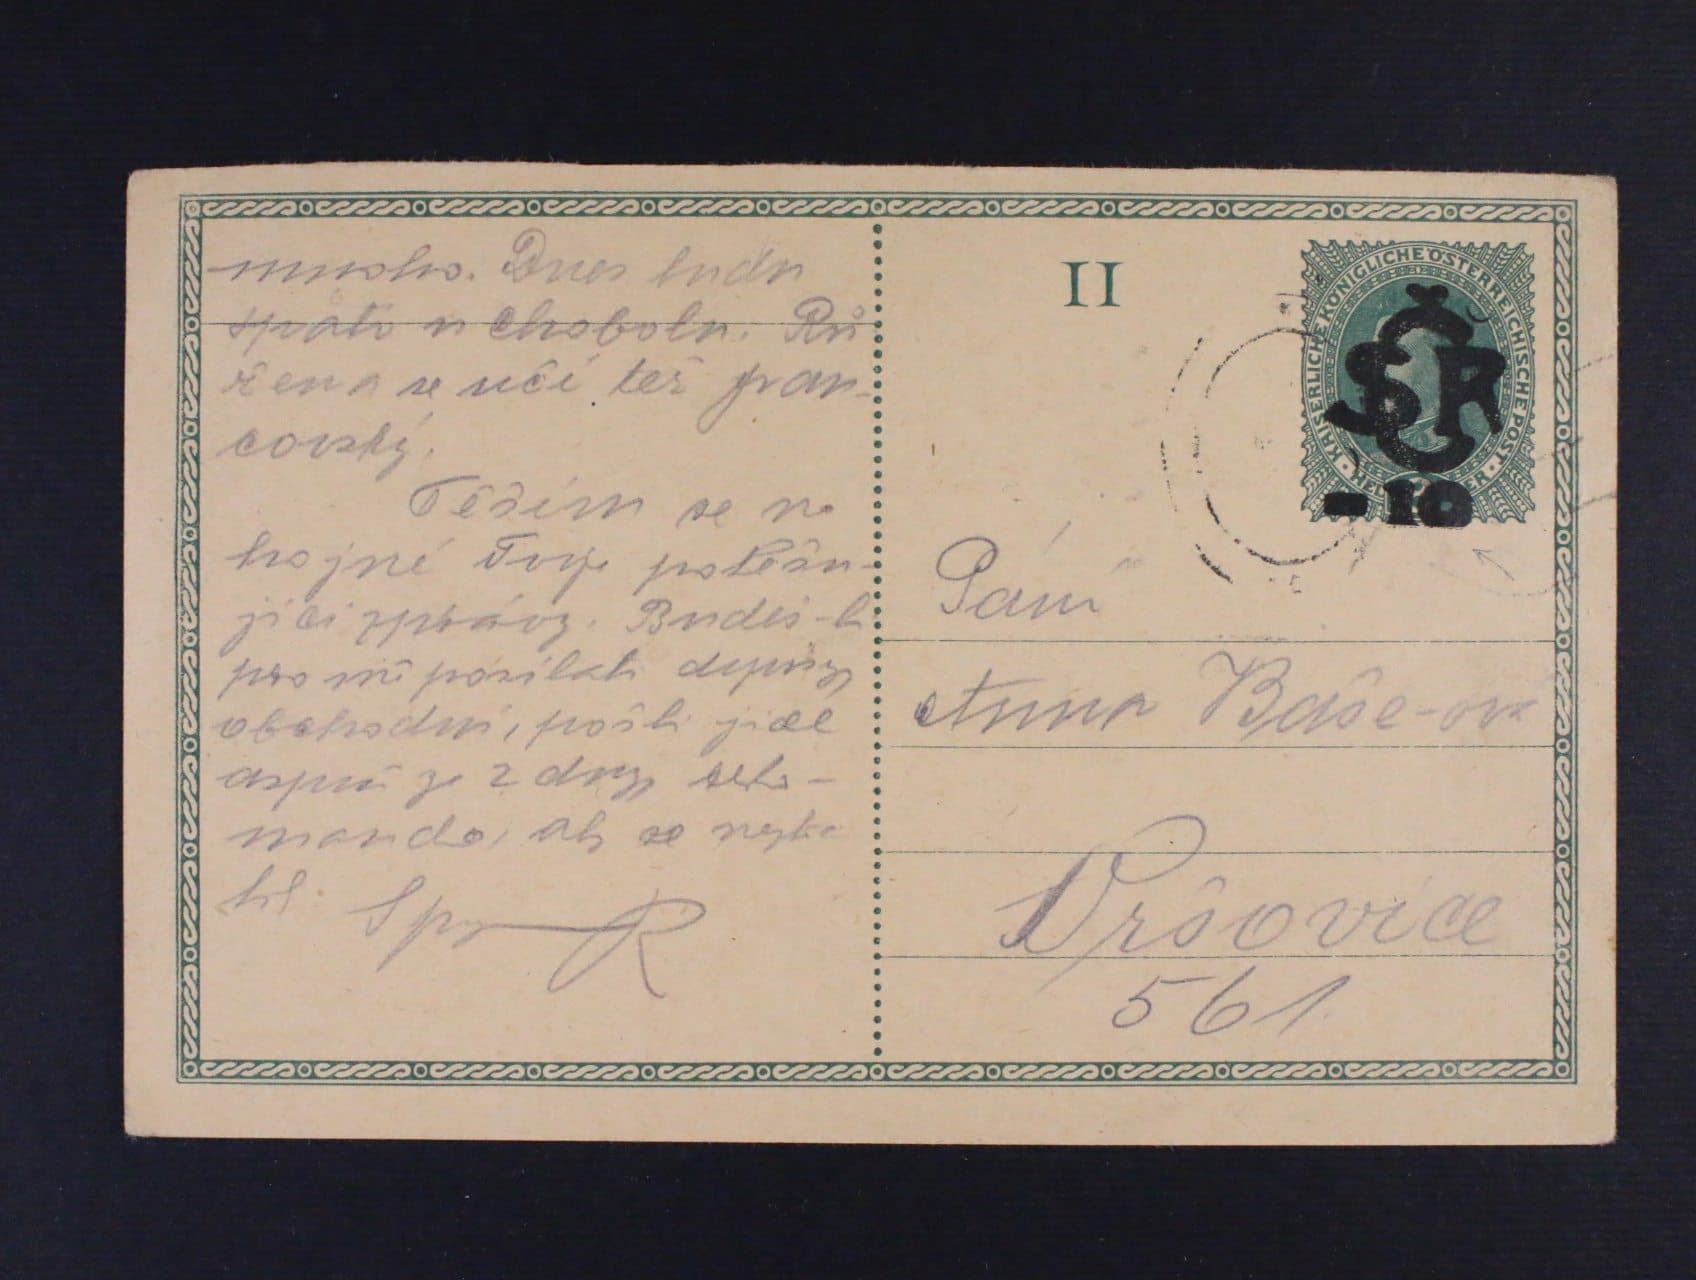 mnoho. Dnes budu
spáti u Chobolu. Rů
žena se učí též fran-
covsky.
Těším se na
hojné Tvoje potěšu-
jící zprávy. Budeš-li
pro mě posílati dopisy
obchodní, pošli jich
aspoň 2
mando, aby se
Spěj R
II
KAISERLICHE KÖNIGLICHE ÖSTERREICHISCHE POST
ČSR
-10
Paní
Anna Baše-ová
Vršovice
561